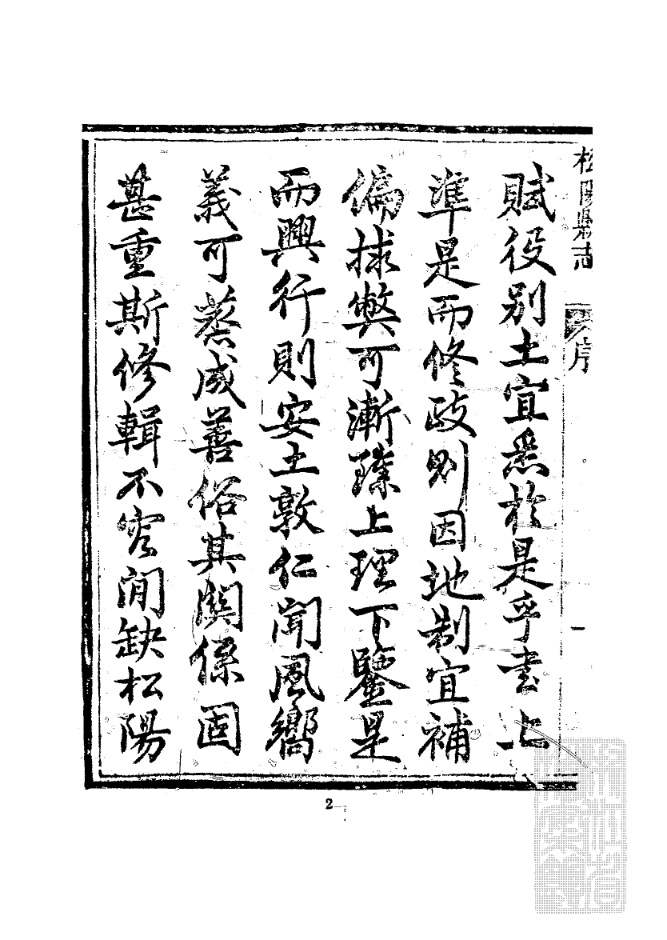 松陽縣志
序
一
賦役别土宜悉於是乎書上
準是而修政則因地制宜補
偏捄弊可漸臻上理下鑒是
而興行則安土敦仁聞風嚮
義可蒸成善俗其關係固
甚重斯修輯不容閒缺松陽
2